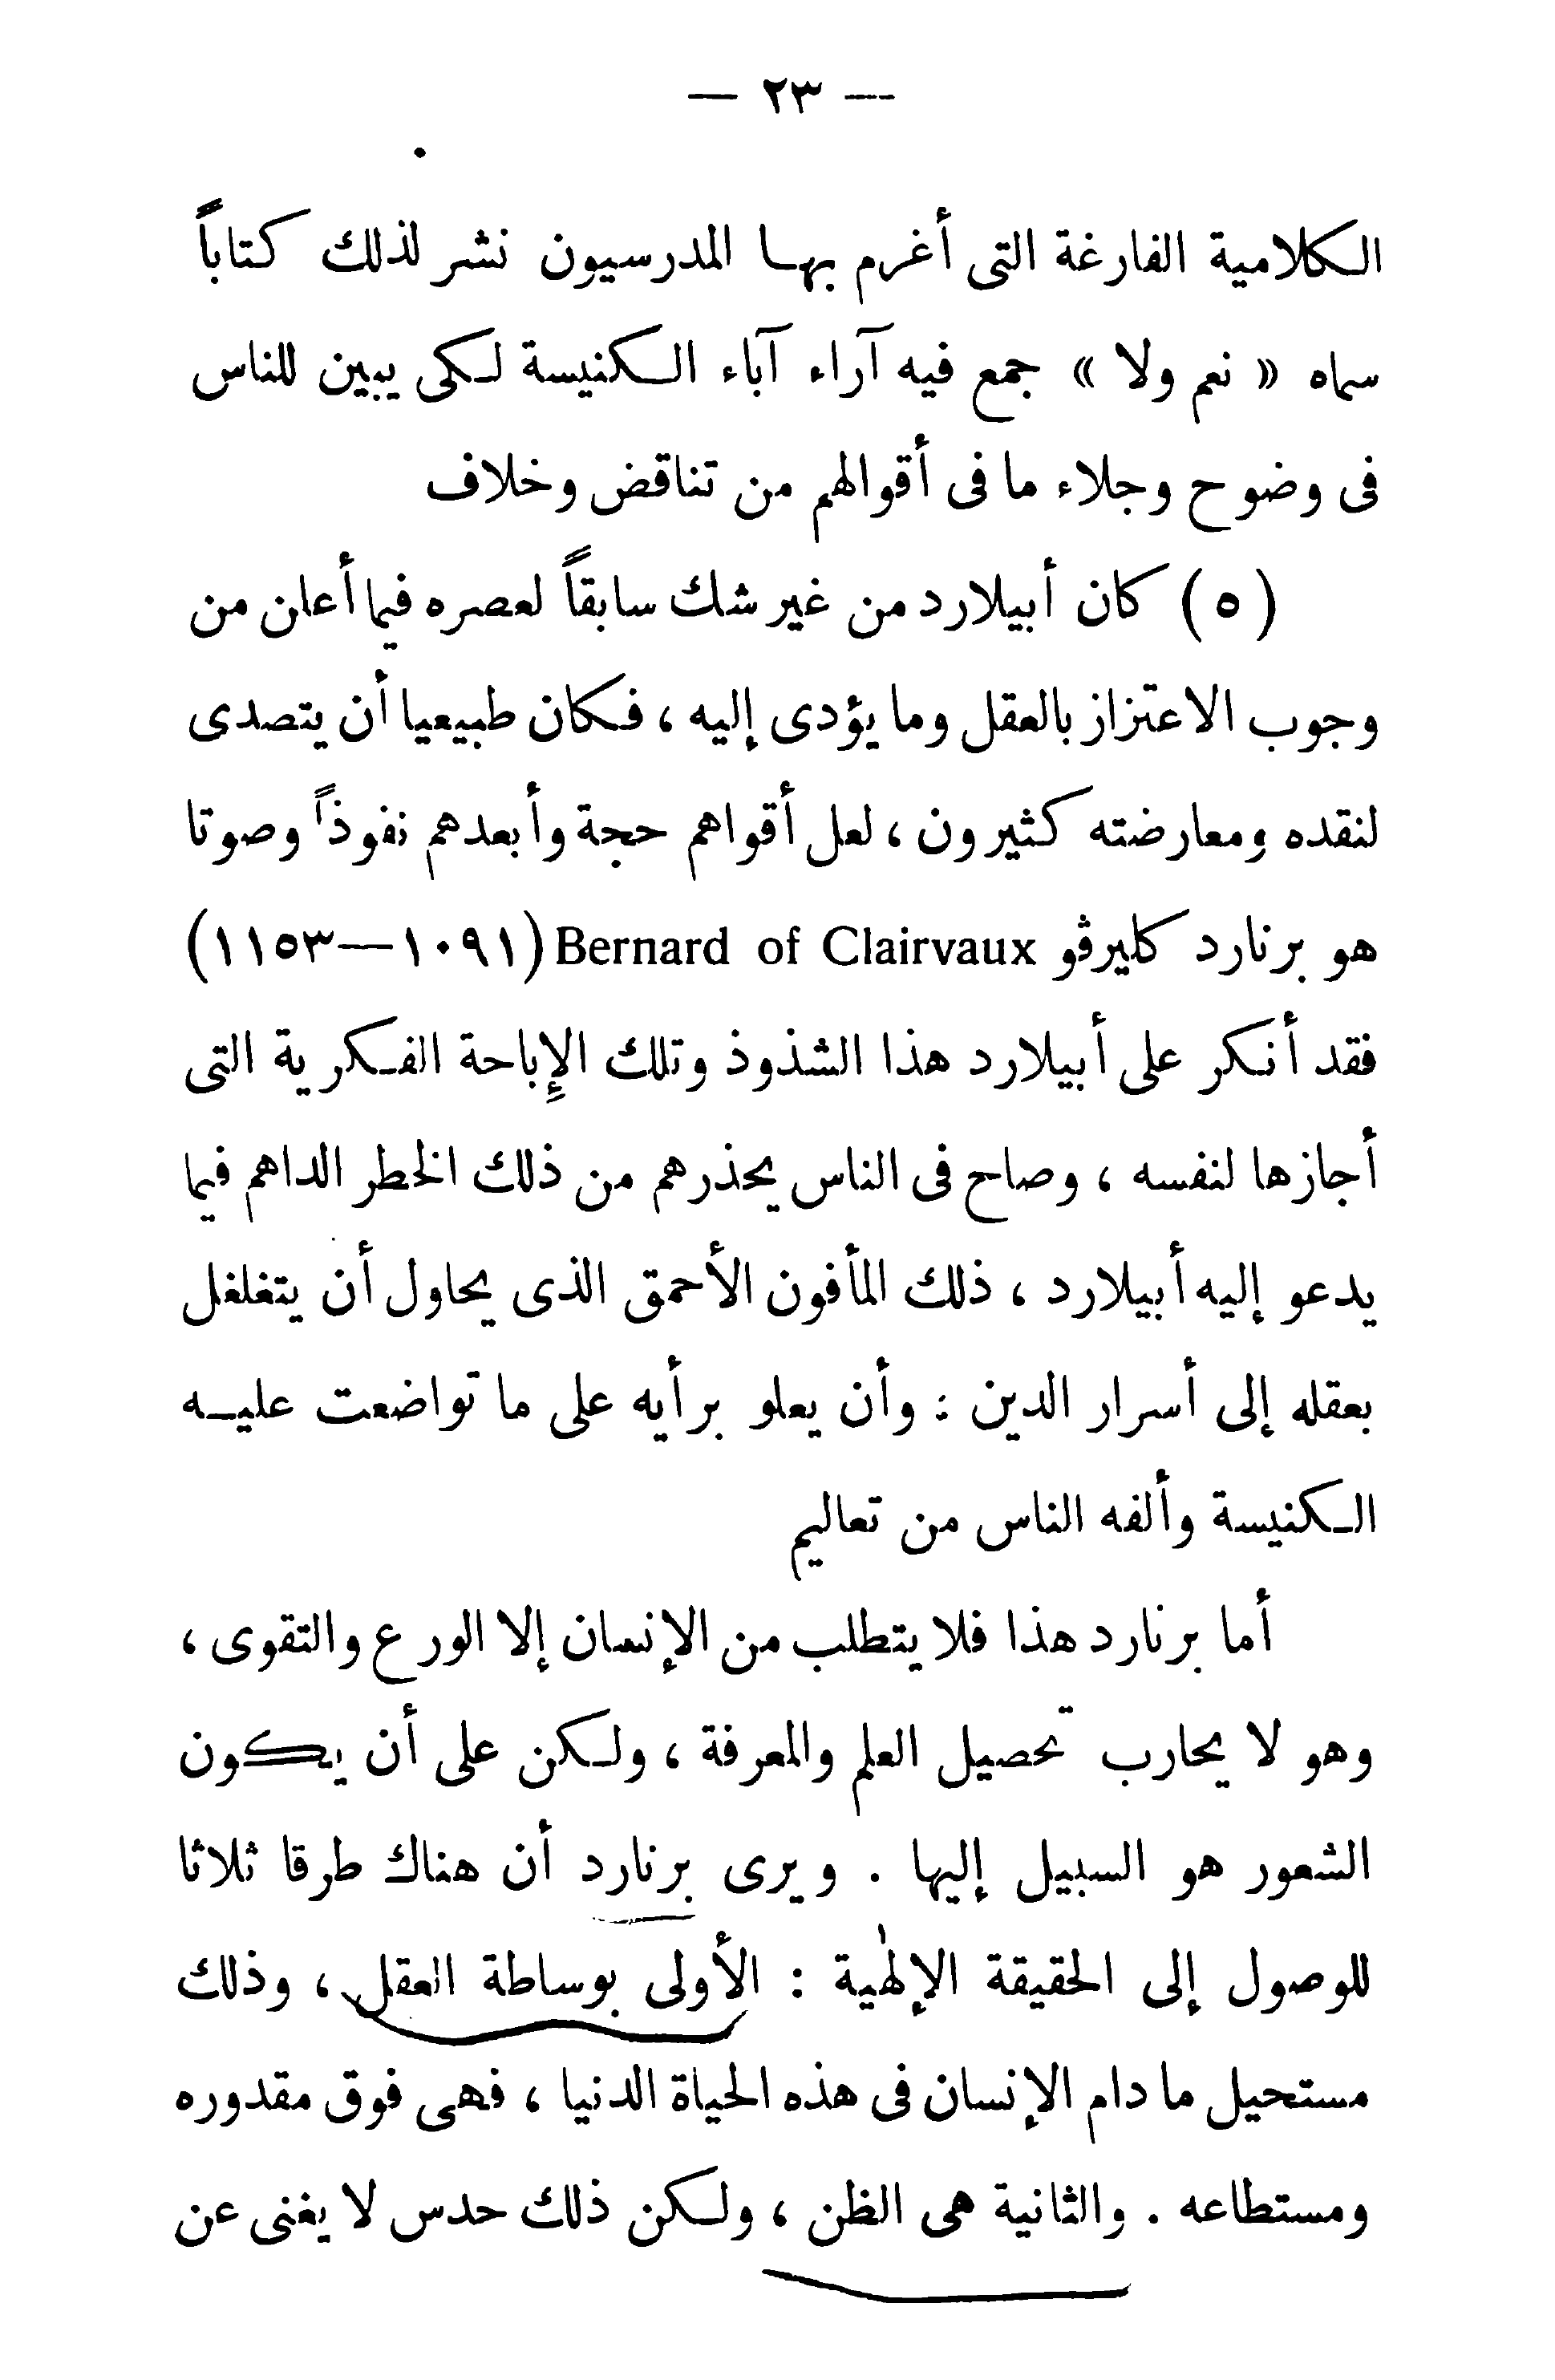 — ٢٣ —
الكلامية الفارغة التى أغرم بها المدرسيون نشر لذلك كتاباً
سماه « نعم ولا » جمع فيه آراء آباء الكنيسة لكى يبين للناس
فى وضوح وجلاء ما فى أقوالهم من تناقض وخلاف
( ٥ ) كان أبيلارد من غير شك سابقاً لعصره فيما أعلن من
وجوب الاعتزاز بالعقل وما يؤدى إليه ، فكان طبيعيا أن يتصدى
لنقده ومعارضته كثيرون ، لعل أقواهم حجة وأبعدهم نفوذاً وصوتا
هو برنارد كليرڤو Bernard of Clairvaux (١٠٩١—١١٥٣)
فقد أنكر على أبيلارد هذا الشذوذ وتلك الإباحة الفكرية التى
أجازها لنفسه ، وصاح فى الناس يحذرهم من ذلك الخطر الداهم فيما
يدعو إليه أبيلارد ، ذلك المأفون الأحمق الذى يحاول أن يتغلغل
بعقله إلى أسرار الدين : وأن يعلو برأيه على ما تواضعت عليه
الكنيسة وألفه الناس من تعاليم
أما برنارد هذا فلا يتطلب من الإنسان إلا الورع والتقوى ،
وهو لا يحارب تحصيل العلم والمعرفة ، ولكن على أن يكون
الشعور هو السبيل إليها . ويرى برنارد أن هناك طرقا ثلاثا
للوصول إلى الحقيقة الإلٰهية : الأولى بوساطة العقل ، وذلك
مستحيل ما دام الإنسان فى هذه الحياة الدنيا ، فهى فوق مقدوره
ومستطاعه . والثانية هى الظن ، ولكن ذلك حدس لا يغنى عن